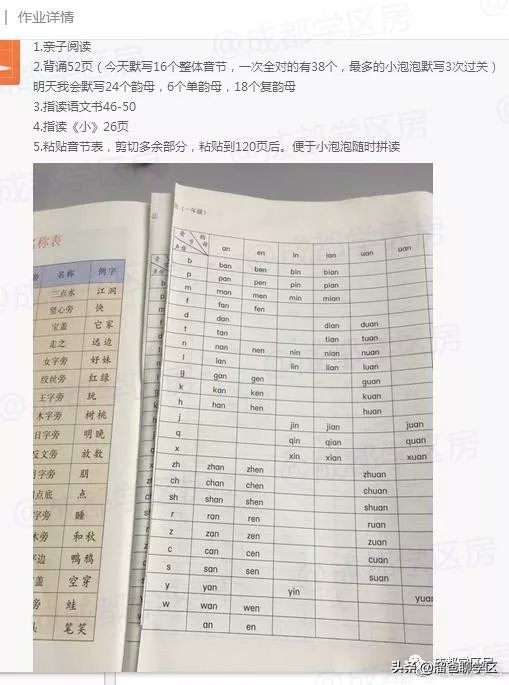 作业详情
1.亲子阅读
2.背诵52页（今天默写16个整体音节，一次全对的有38个，最多的小泡泡默写3次过关）
明天我会默写24个韵母，6个单韵母，18个复韵母
3.指读语文书46-50
4.指读《小》26页
5.粘贴音节表，剪切多余部分，粘贴到120页后。便于小泡泡随时拼读
称表
名称 例字
三点水 江洞
竖心旁 快
宝盖 它家
走之 远边
女字旁 好妹
绞丝旁 红绿
王字旁 玩
木字旁 树桃
日字旁 明晚
反文旁 放数
月字旁 朋
四点底 点
字旁 睡
木旁 和秋
字边 鸭鹅
盖 空穿
旁 蛙
头 笔笑
（一年级）
an en in ian uan üan
b ban ben bin bian
p pan pen pin pian
m man men min mian
f fan fen
d dan dian duan
t tan tian tuan
n nan nen nin nian nuan
l lan lin lian luan
g gan gen guan
k kan ken kuan
h han hen huan
j jin jian juan
q qin qian quan
x xin xian xuan
zh zhan zhen zhuan
ch chan chen chuan
sh shan shen shuan
r ran ren ruan
z zan zen zuan
c can cen cuan
s san sen suan
y yan yin yuan
w wan wen
an en
成都学区房
头条@溜爸聊学区
@成都学区房